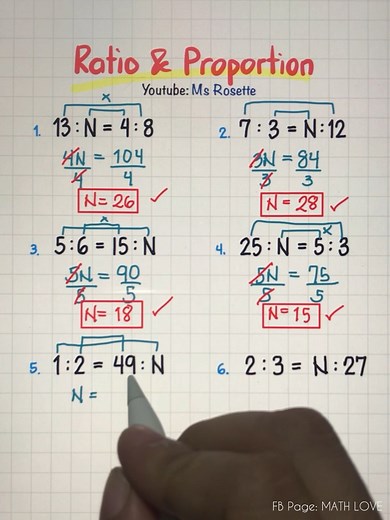 Ratio & Proportion
Youtube: Ms Rosette
x
1. 13 : N = 4 : 8
4N = 104
4 4
N = 26 ✓
2. 7 : 3 = N : 12
3N = 84
3 3
N = 28 ✓
x
3. 5 : 6 = 15 : N
5N = 90
5 5
N = 18 ✓
x
4. 25 : N = 5 : 3
5N = 75
5 5
N = 15 ✓
5. 1 : 2 = 49 : N
N =
6. 2 : 3 = N : 27
FB Page: MATH LOVE